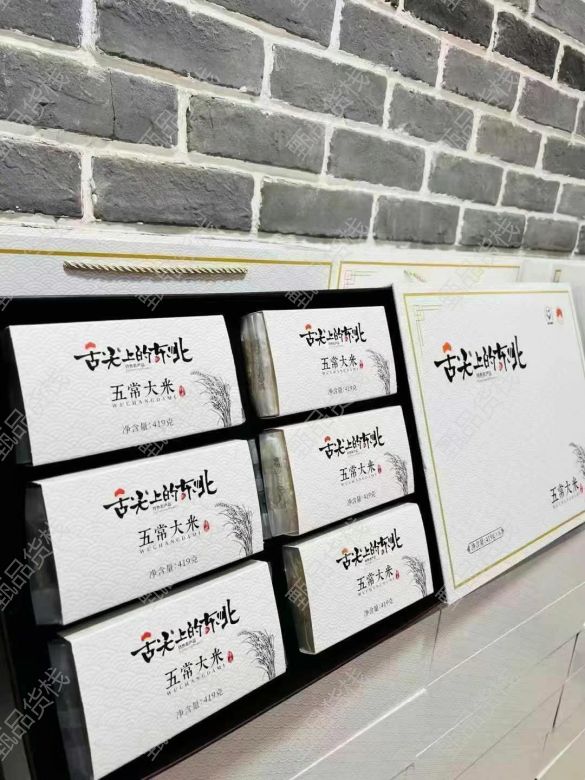 舌尖上的东北
特色农产品
五常大米
WUCHANGDAMI
净含量:419克
舌尖上的东北
特色农产品
五常大米
WUCHANGDAMI
净含量:419克
舌尖上的东北
特色农产品
五常大米
WUCHANGDAMI
净含量:419克
舌尖上的东北
五常大米
WUCHANGDAMI
净含量:419克
舌尖上的东北
五常大米
WUCHANGDAMI
净含量:419克
舌尖上的东北
五常大米
WUCHANGDAMI
净含量:419克
舌尖上的东北
特色农产品
五常大米
甄品货栈